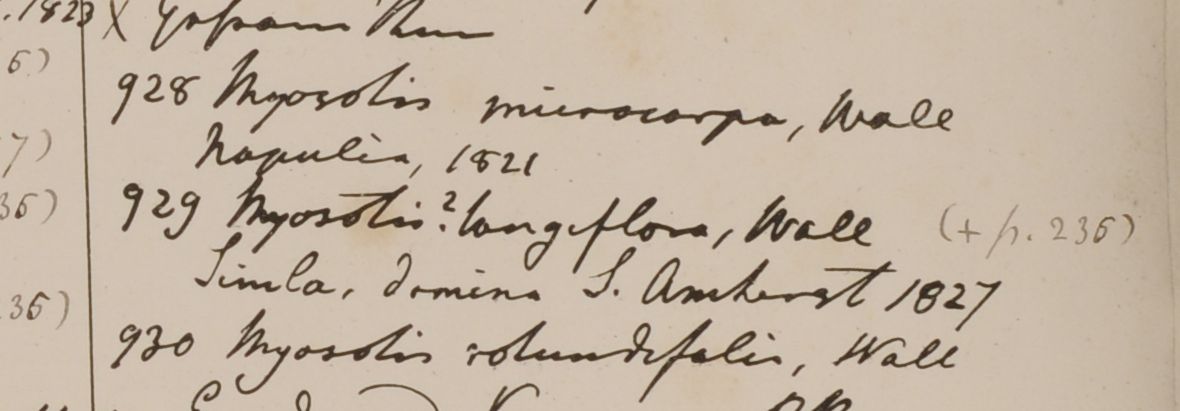 .1823 X Gosam Than
6)
928 Myosotis microcarpa, Wall
7) Napalia, 1821
36) 929 Myosotis? longiflora, Wall (+ p. 236)
Simla, domina S. Amherst 1827
36)
930 Myosotis rotundifolia, Wall